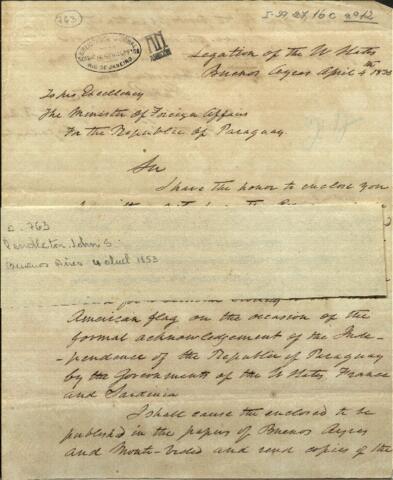 763
I-29, 27, 16 c nº 12
BIBLIOTHECA NACIONAL
RIO DE JANEIRO
Legation of the U States
Buenos Ayres April 4th 1853
To his Excellency
The Minister of Foreign Affairs
For the Republic of Paraguay.
Sir
I have the honor to enclose you
763
Pendleton, John S.
Buenos Aires 4 abril 1853
American flag on the occasion of the
formal acknowledgement of the Inde-
-pendence of the Republic of Paraguay
by the Governments of the U States, France
and Sardinia
I shall cause the enclosed to be
published in the papers of Buenos Ayres
and Monte-Video and send copies of the